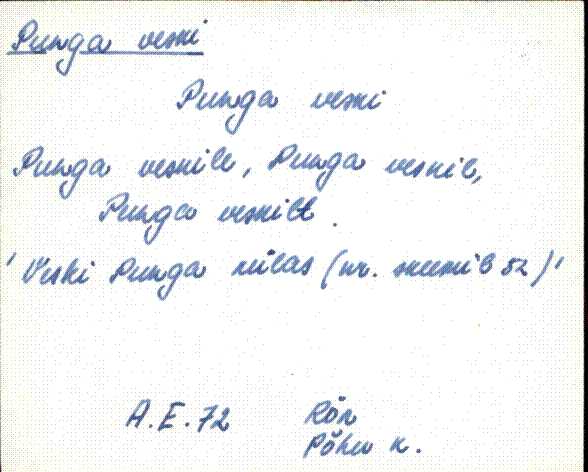 Punga veski
Punga veski
Punga veskile, Punga veskil,
Punga veskilt.
'Veski Punga külas (nr. skeemil 52)'
A.E. 72 Rõn
Põhu k.